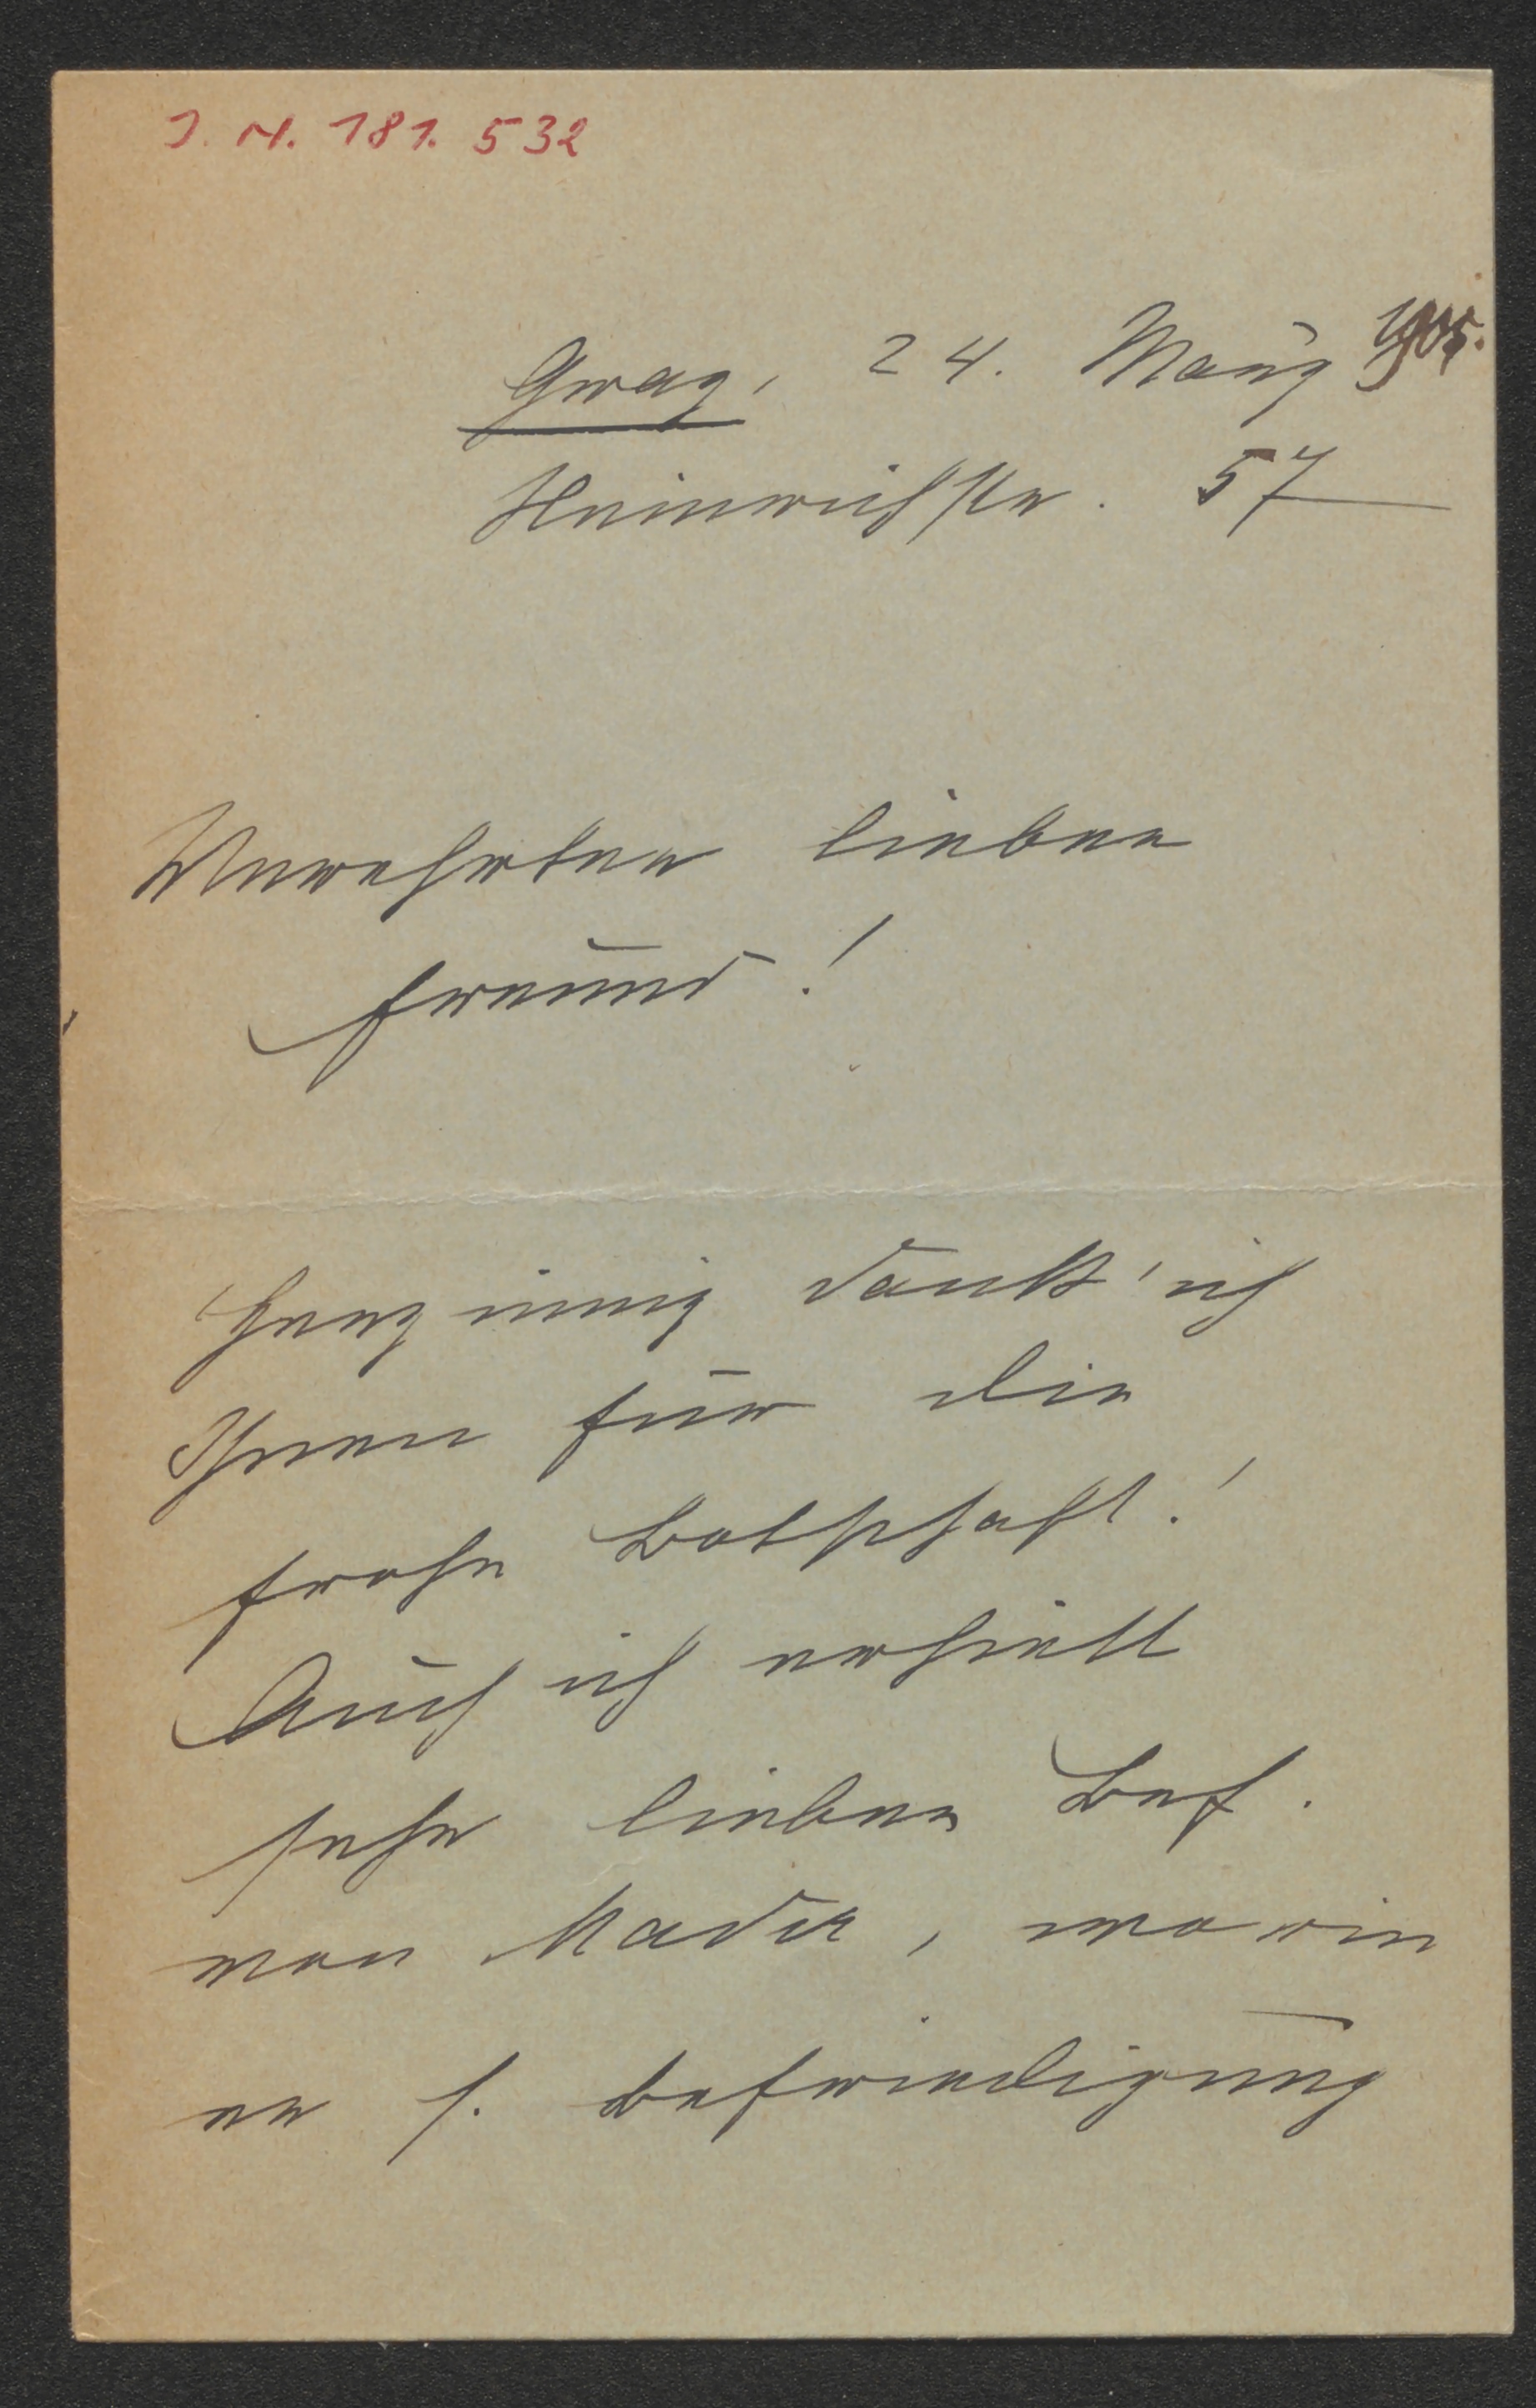 J. N. 181. 532
Graz, 24. März 905.
Heinrichstr. 57
Verehrter lieber
Freund!
Herzinnig dank' ich
Ihnen für die
frohe Botschaft!
Auch ich erhielt
sehr lieben Brf.
von Mader, worin
er s. Befriedigung